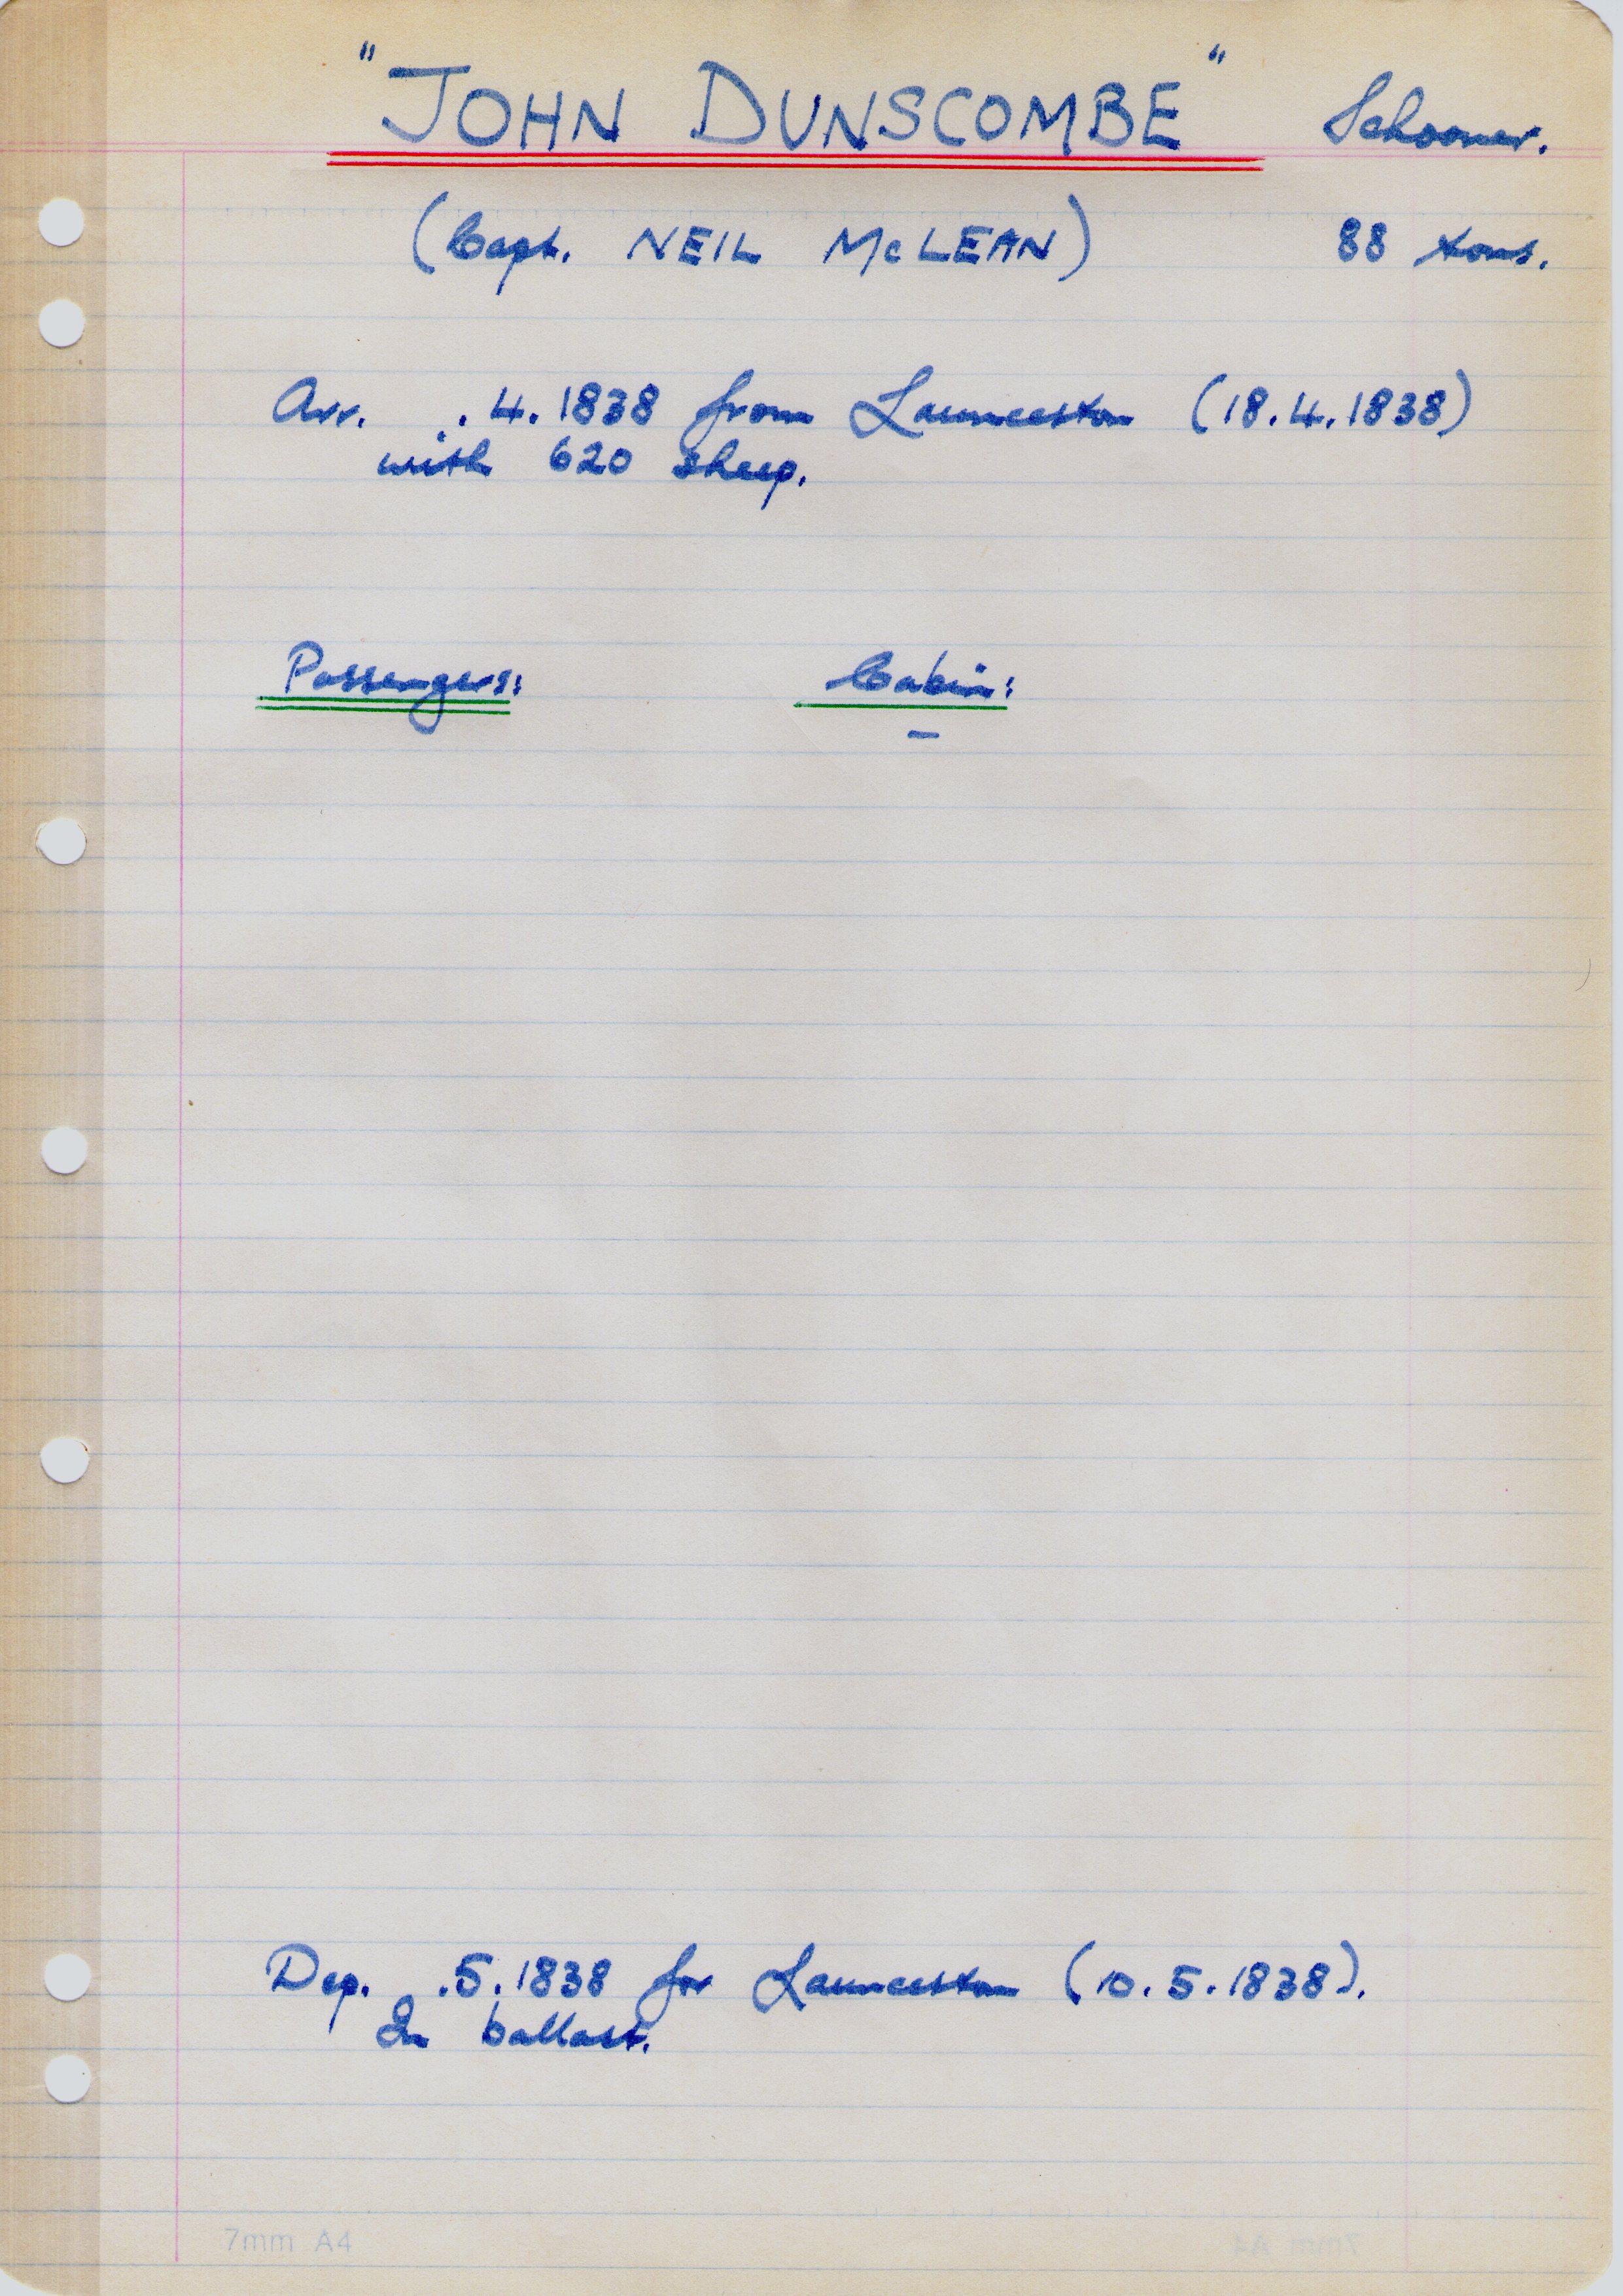 "JOHN DUNSCOMBE" Schooner.
(Capt. NEIL McLEAN) 88 tons.
Arr. . 4. 1838 from Launceston (18.4.1838)
with 620 sheep.
Passengers: Cabin:
–
Dep. .5.1838 for Launceston (10.5.1838).
In ballast.
7mm A4